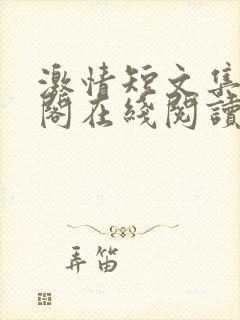 激情短文集
閣在綫閱讀
弄笛